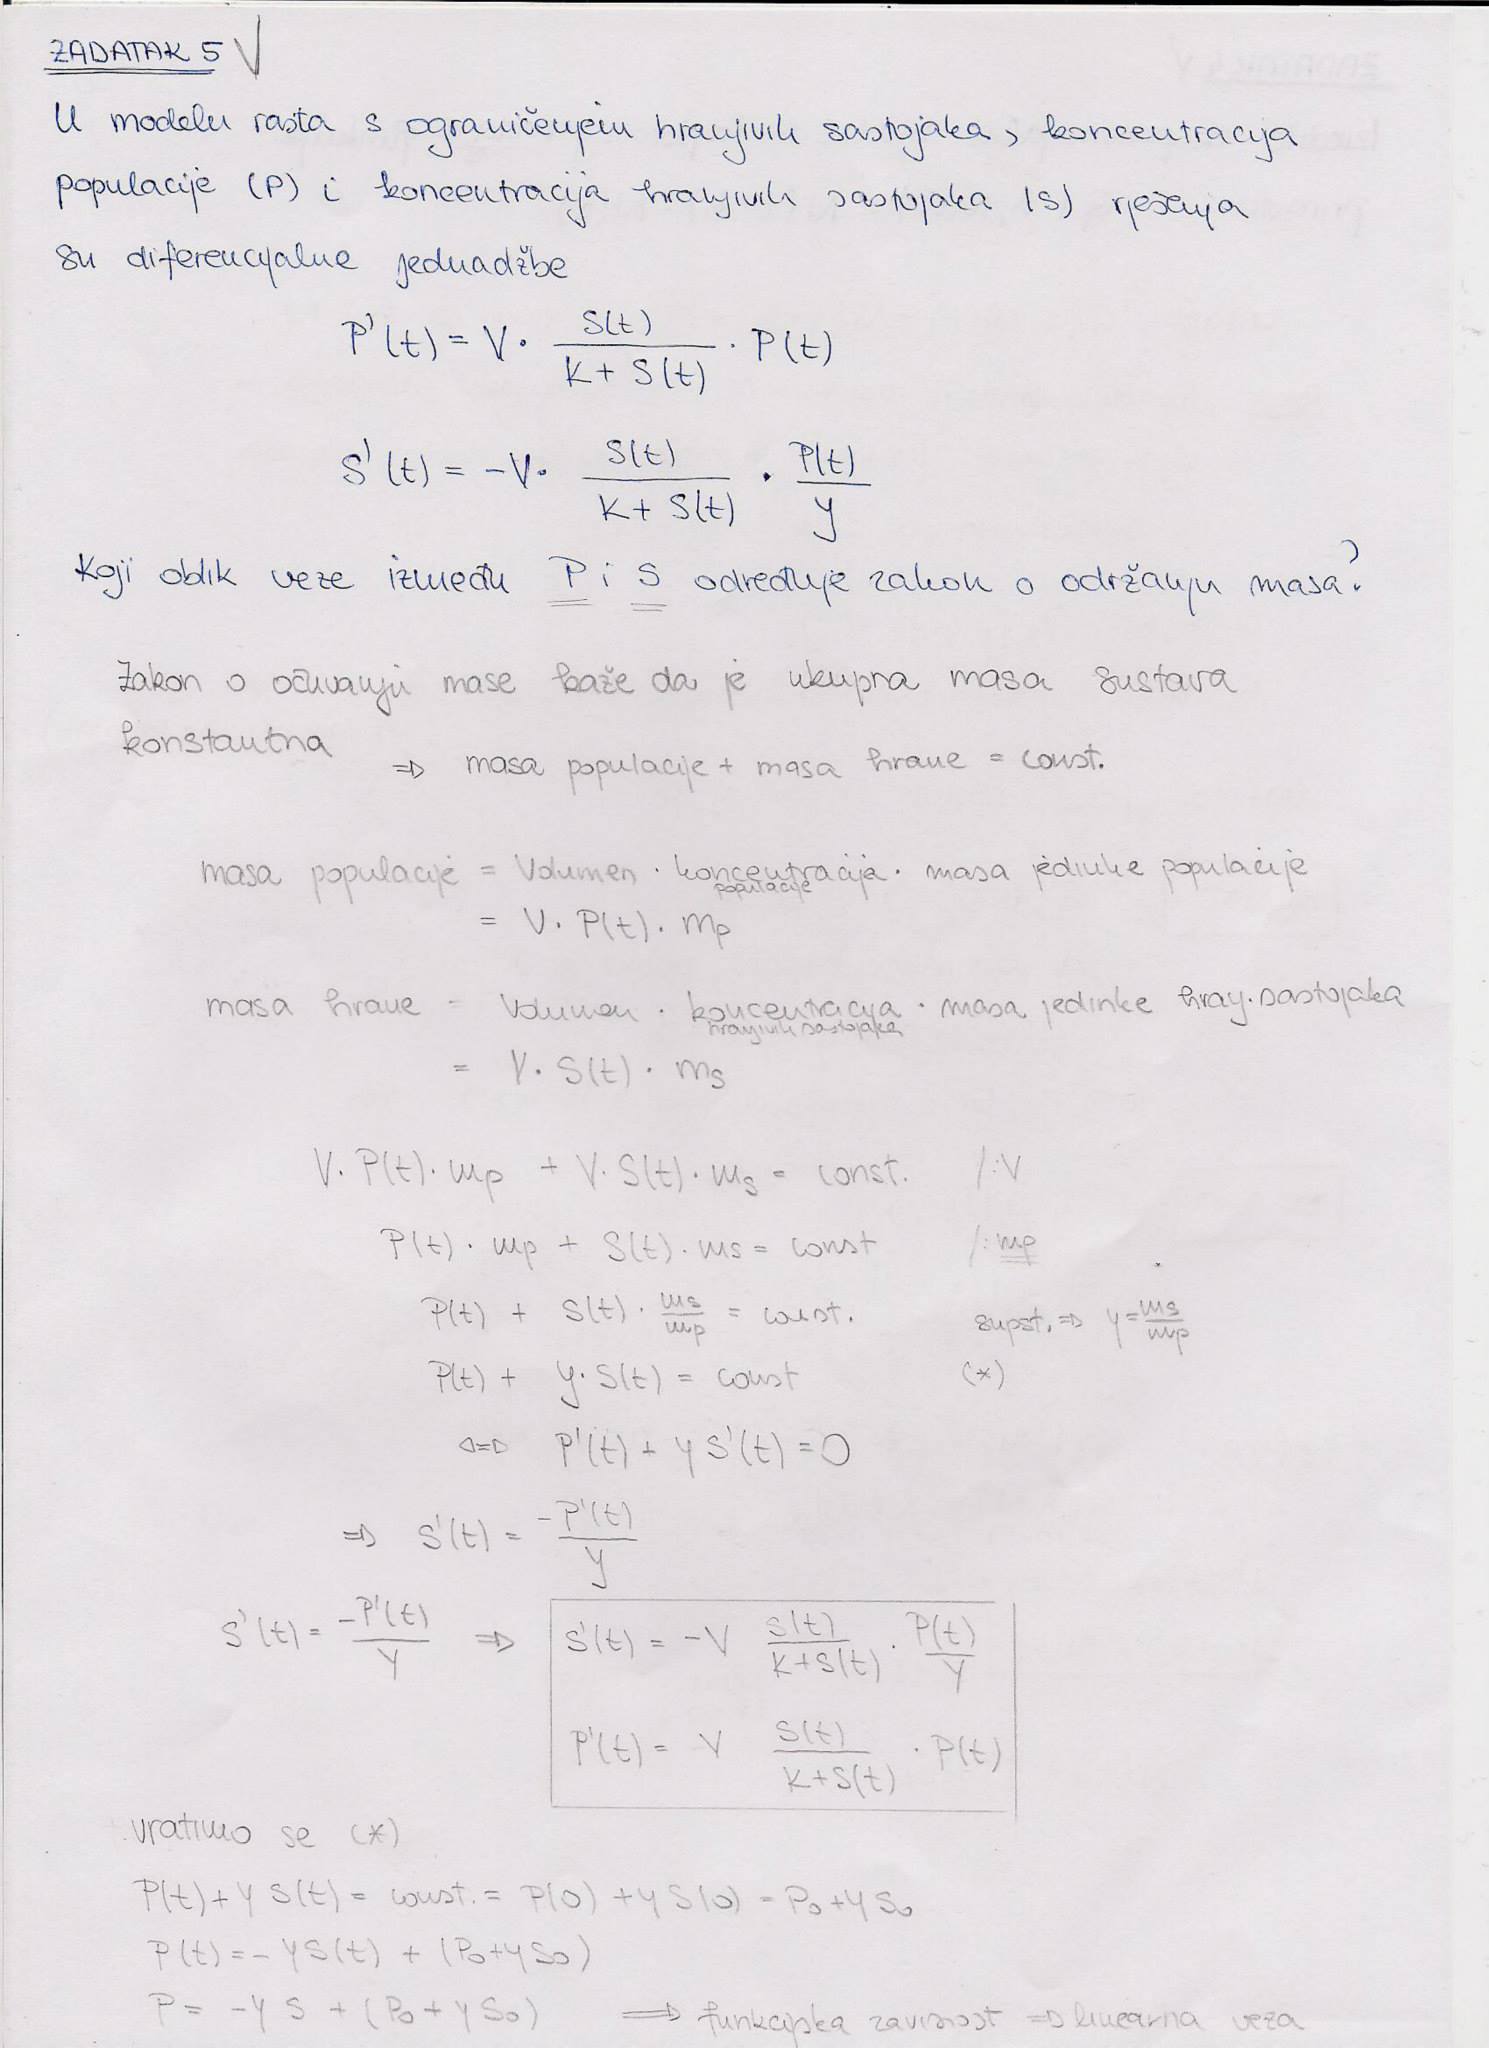 ZADATAK 5 √
U modelu rasta s ograničenjem hranjivih sastojaka, koncentracija
populacije (P) i koncentracija hranjivih sastojaka (S) rješenja
su diferencijalne jednadžbe
P'(t) = V · S(t) / (K + S(t)) · P(t)
S'(t) = -V · S(t) / (K + S(t)) · P(t) / y
Koji oblik veze između P i S određuje zakon o održanju masa?
Zakon o očuvanju mase kaže da je ukupna masa sustava
konstantna
⇒ masa populacije + masa hrane = const.
masa populacije = Volumen · koncentracija populacije · masa jedinke populacije
= V · P(t) · mp
masa hrane = Volumen · koncentracija hranjivih sastojaka · masa jedinke hranj. sastojaka
= V · S(t) · ms
V · P(t) · mp + V · S(t) · ms = const. /:V
P(t) · mp + S(t) · ms = const /:mp
P(t) + S(t) · ms/mp = const. supst. ⇒ y = ms/mp
P(t) + y · S(t) = const (*)
⇔ P'(t) + y S'(t) = 0
⇒ S'(t) = -P'(t) / y
S'(t) = -P'(t) / y ⇒ S'(t) = -V S(t) / (K+S(t)) · P(t) / y
P'(t) = V S(t) / (K+S(t)) · P(t)
vratimo se (*)
P(t) + y S(t) = const. = P(0) + y S(0) = P₀ + y S₀
P(t) = - y S(t) + (P₀ + y S₀)
P = -y S + (P₀ + y S₀) ⇒ funkcijska zavisnost ⇒ linearna veza